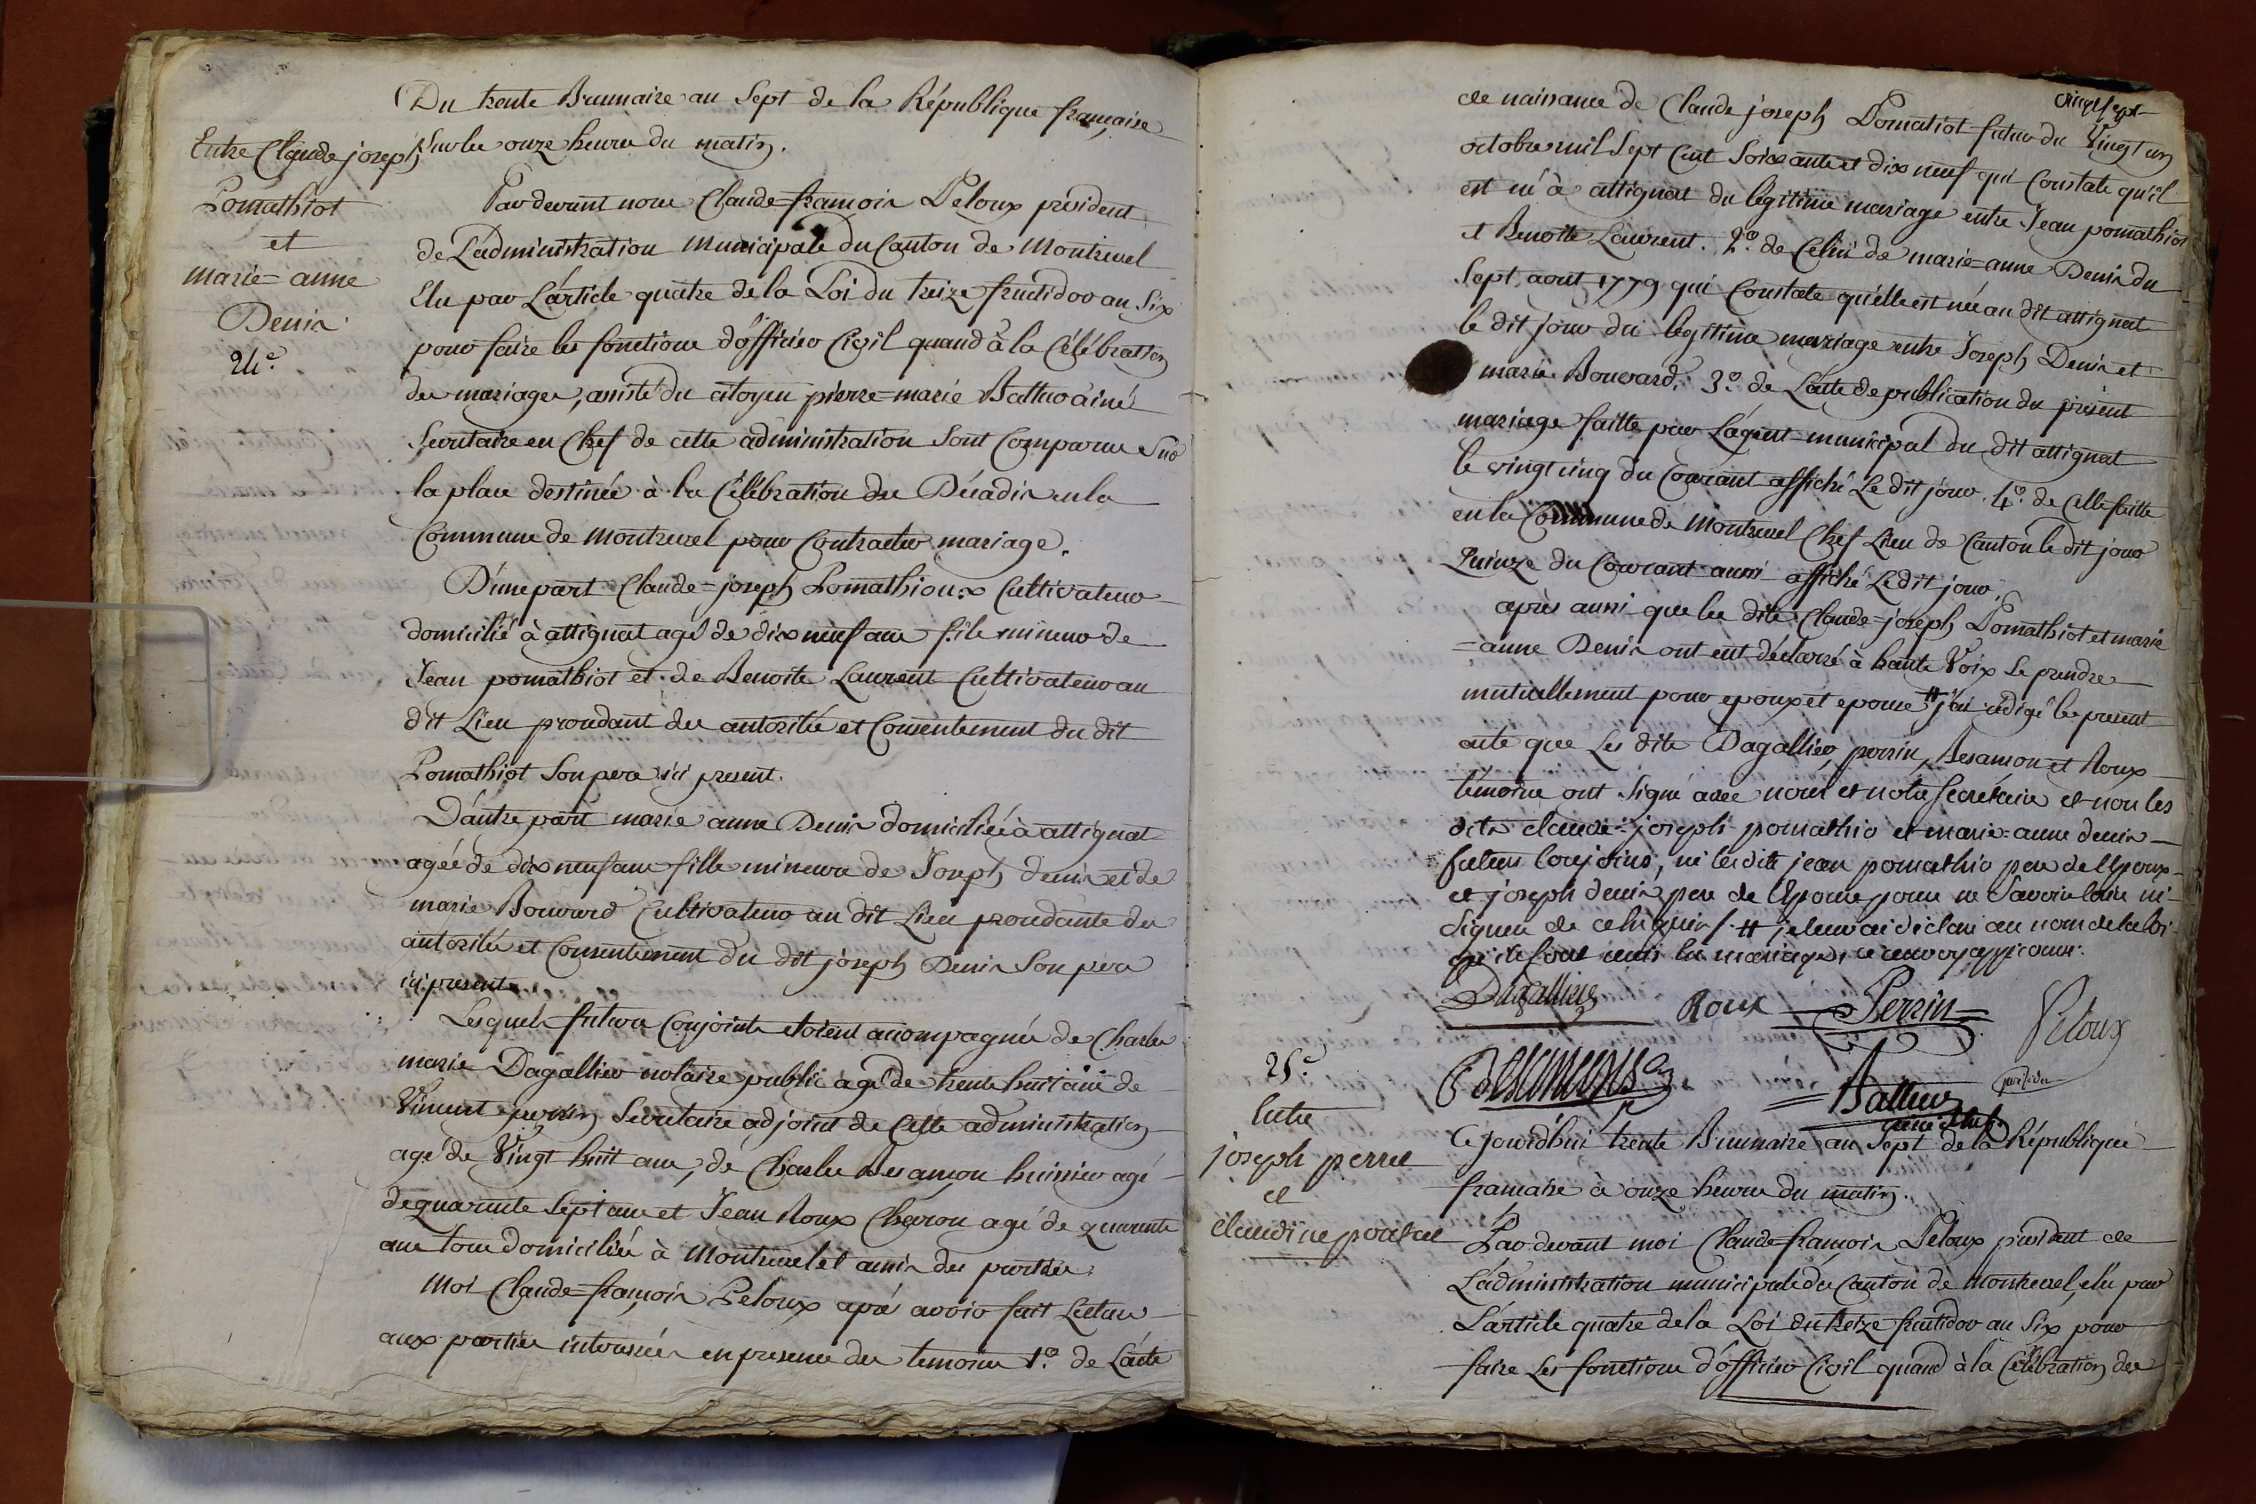 Du trente Brumaire an Sept de la République française
Sur les onze heures du matin.
Entre Claude joseph
Pomathiot
et
marie=anne
Denis
24.e
Pardevant nous Claude=françois Peloux président
de L'administration municipale du Canton de Montrevel
Elu par L'article quatre de la Loi du treize fructidor an Six
pour faire les fonctions d'officier Civil quand à la Célébration
des mariages, assisté du citoyen pierre=marie Battur ainé
Secretaire en Chef de cette administration Sont Comparus Sur
la place destinée à la Célébration des Décadis en la
Commune de Montrevel pour Contracter mariage.
D'une part Claude=joseph Pomathioux Cultivateur
domicilié à attignat agé de dix neuf ans fils mineur de
Jean pomathiot et de Benoite Laurent Cultivateur au
dit Lieu procedant des autorité et Consentement du dit
Pomathiot Son pere ici present.
D'autre part marie anne Denis domiciliée à attignat
agée de dix neuf ans fille mineure de Joseph denis et de
marie Bouvard Cultivateur au dit Lieu procedante des
autorité et Consentement du dit joseph Denis Son pere
ici present
Lesquels futurs Conjoints etoient accompagnés de Charles
marie Dagallier notaire public agé de trente huit ans de
Vincent perrin Secretaire adjoint de Cette administration
agé de Vingt huit ans, de Charles Besançon huissier agé
de quarante Sept ans et Jean Roux Charon agé de quarante
ans tous domiciliés à Montrevel et amis des parties.
Moi Claude=françois Peloux après avoir fait Lecture
aux parties interessées en presence des temoins 1.º de L'acte
vingt sept
de naissance de Claude joseph Pomatiot futur du Vingt un
octobre mil Sept Cent Soixante et dix neuf qui Constate qu'il
est né à attignat du légitime mariage entre Jean pomathiot
et Benoite Laurent. 2.º de Celui de marie=anne Denis du
Sept aout 1779 qui Constate qu'elle est née au dit attignat
le dit jour du legitime mariage entre Joseph Denis et
marie Bouvard, 3.º de L'acte de publication du présent
mariage faitte par L'agent=municipal du dit attignat
le vingt cinq du Courant affiché Le dit jour. 4.º de Celle faitte
en la Commune de Montrevel Chef Lieu de Canton le dit jour
Quinze du Courant aussi affiché Le dit jour.
après aussi que les dits Claude=joseph Pomathiot et marie
=anne Denis ont eut déclarré à haute Voix Se prendre
mutuellement pour epoux et epouse # j'ai rédigé le present
acte que Les dits Dagallier, perrin, Besançon et Roux
témoins ont Signé avec nous et notre Secrétaire et non les
dits claude=joseph pomathio et marie=anne denis
futurs Conjoints, ni les dits jean pomathio pere de l'Epoux
et joseph denis pere de l'Epouse pour ne Savoir Ecrire ni
Signer de ce enquis /. # je leur ai déclaré au nom de la loi
qu'ils Sont unis en mariage, ce renvoy approuvé.
Dagallier
Roux
Perrin
Peloux
président
Besançon
Battur
25.e
Entre
joseph perret
et
Claudine
Cejourd'hui trente Brumaire an Sept de la République
francaise à onze heures du matin.
Par devant moi Claude françois Peloux président de
L'administration municipale du Canton de Montrevel, élu par
L'article quatre de la Loi du treize fructidor an Six pour
faire Les fonctions d'officier Civil quand à la Célébration des